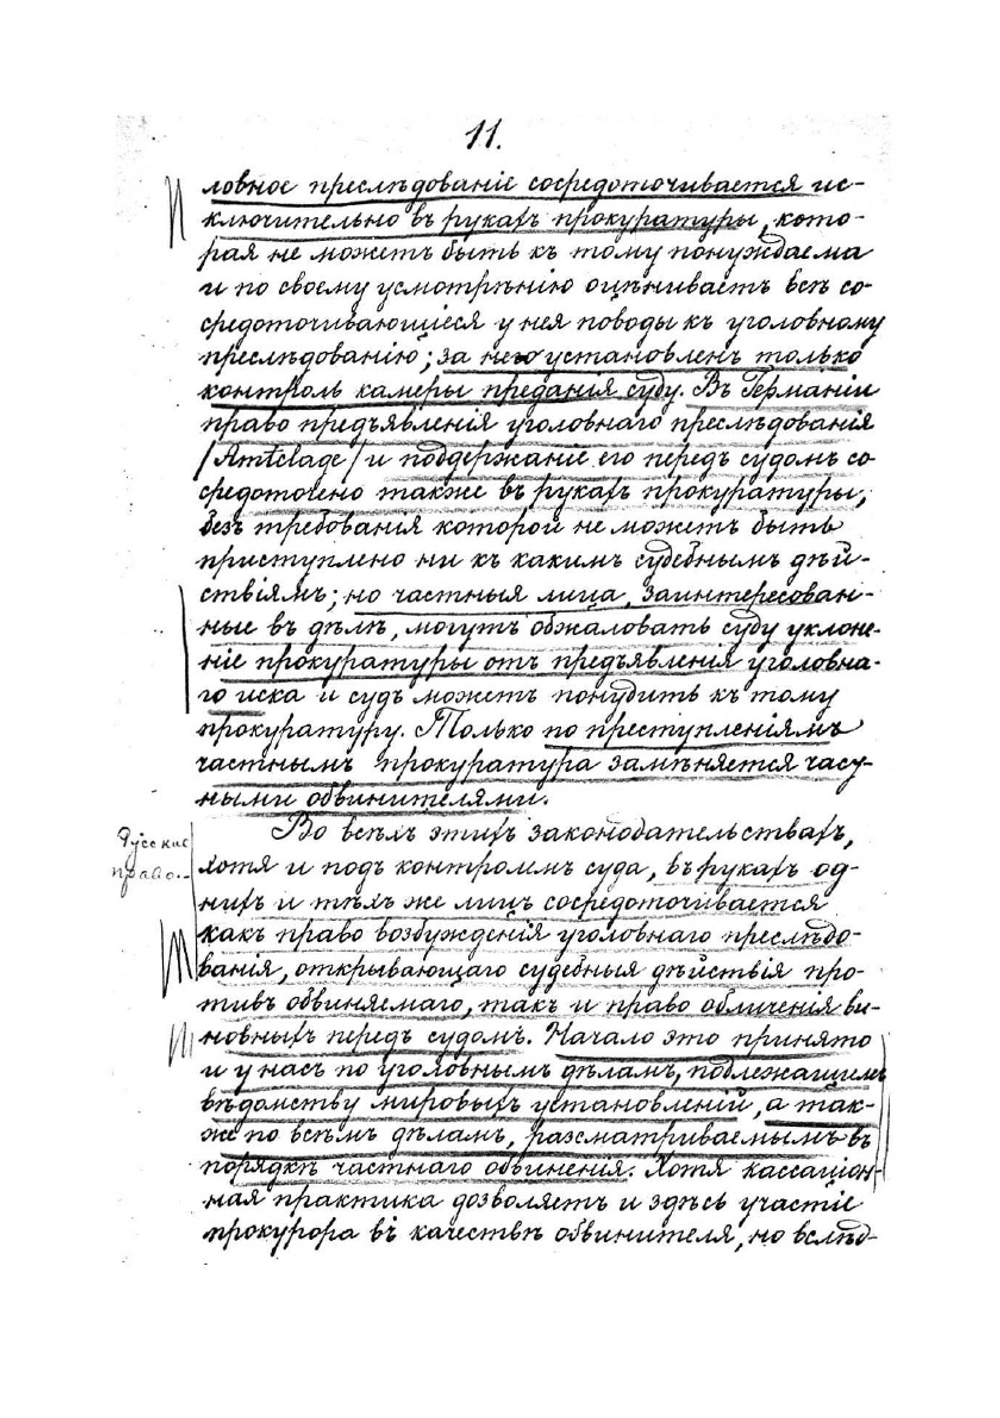 11.
ловное преслѣдованіе сосредоточивается ис-
ключительно въ рукахъ прокуратуры, кото-
рая не можетъ быть къ тому понуждаема
и по своему усмотрѣнію оцѣниваетъ всѣ со-
средоточивающіеся у нея поводы къ уголовному
преслѣдованію; за нею установленъ только
контроль камеры преданія суду. Въ Германіи
право предъявленія уголовнаго преслѣдованія
/Amtclage/ и поддержаніе его передъ судомъ со
средоточено также въ рукахъ прокуратуры,
безъ требованія которой не можетъ быть
приступлено ни къ какимъ судебнымъ дѣй-
ствіямъ; но частныя лица, заинтересован-
ные въ дѣлѣ, могутъ обжаловать суду уклоне-
ніе прокуратуры отъ предъявленія уголовна-
го иска и судъ можетъ понудить къ тому
прокуратуру. Только по преступленіямъ
частнымъ прокуратура замѣняется часу-
ными обвинителями.
Во всѣхъ этихъ законодательствахъ,
Русское
право.
хотя и подъ контролемъ суда, въ рукахъ од-
нихъ и тѣхъ же лицъ сосредоточивается
какъ право возбужденія уголовнаго преслѣдо-
ванія, открывающаго судебныя дѣйствія про-
тивъ обвиняемаго, такъ и право обличенія ви-
новныхъ передъ судомъ. Начало это принято
и у насъ по уголовнымъ дѣламъ, подлежащимъ
вѣдомству мировыхъ установленій, а так-
же по всѣмъ дѣламъ, разсматриваемымъ въ
порядкѣ частнаго обвиненія. Хотя кассаціон-
ная практика дозволяетъ и здѣсь участіе
прокурора въ качествѣ обвинителя, но вслѣд-